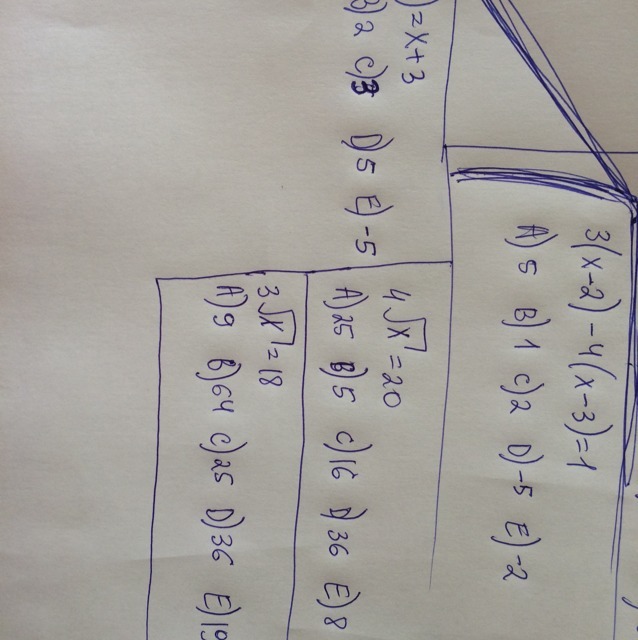 3(x-2)-4(x-3)=1
A) 5 B) 1 C) 2 D) -5 E) -2
)=x+3
B) 2 C) 3 D) 5 E) -5
4√x=20
A) 25 B) 5 C) 16 D) 36 E) 8
3√x=18
A) 9 B) 64 C) 25 D) 36 E) 19